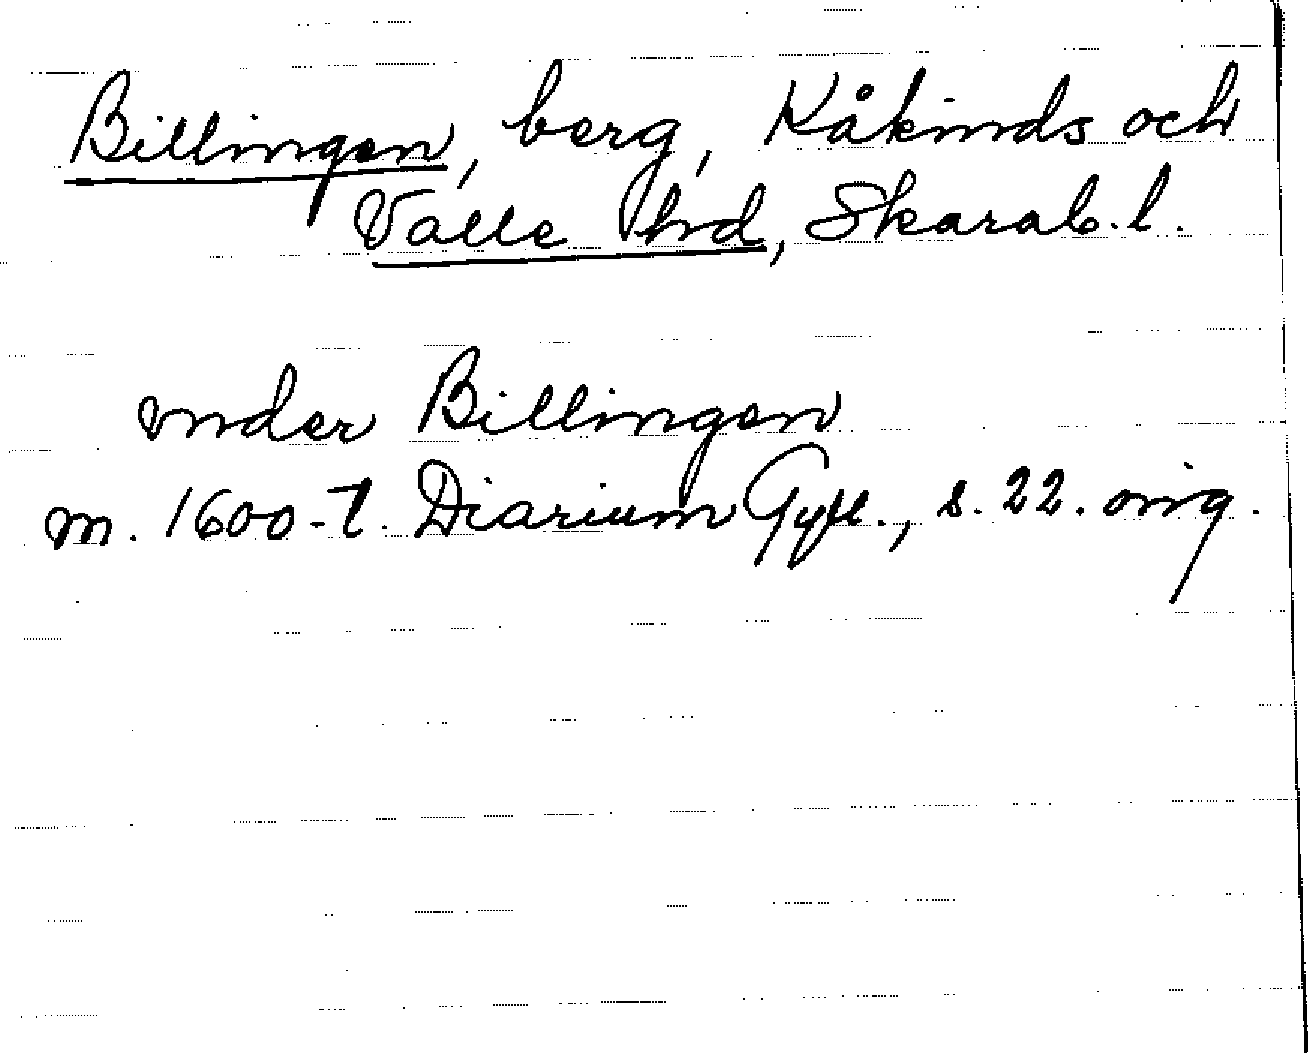 Billingen, berg, Kåkinds och
Valle hd, Skarab. l.
vnder Billingen
m. 1600-t. Diarium Gyll., s. 22. orig.